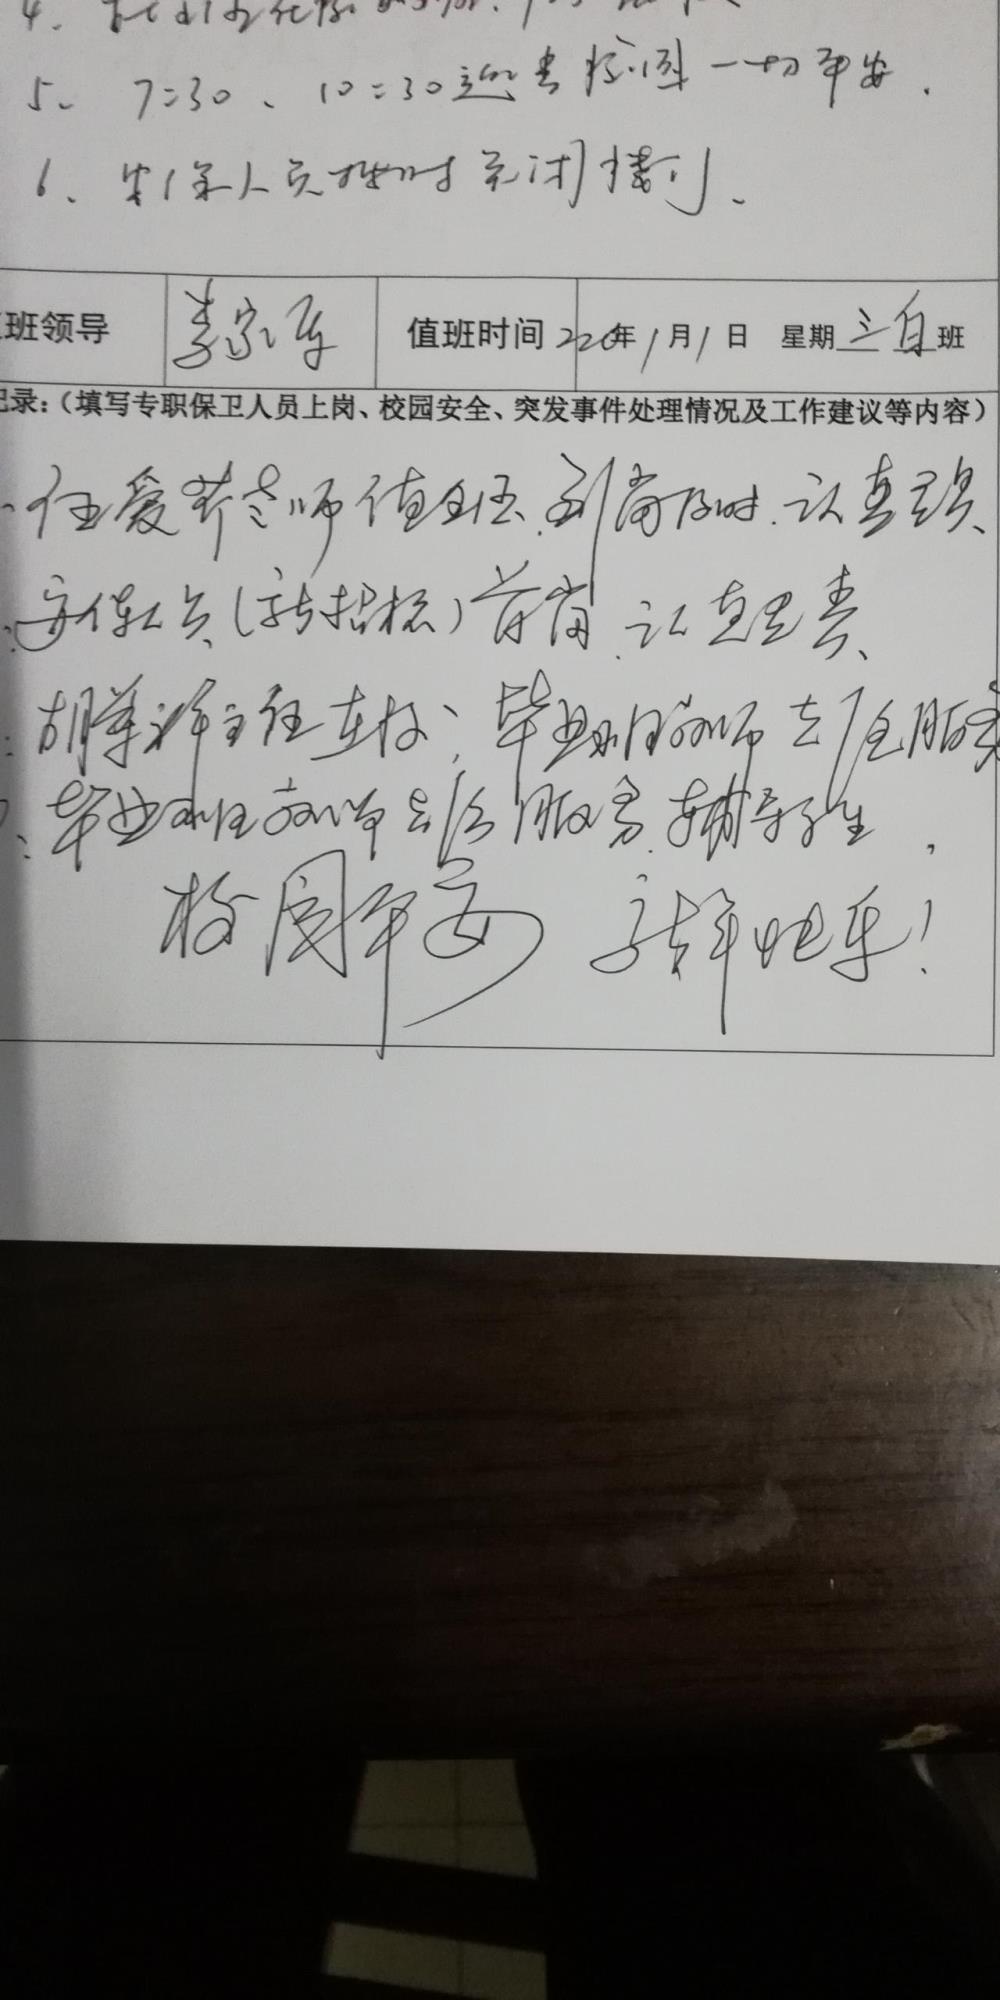 4、
5、7:30、10:30巡查校园一切平安.
6、安保人员按时关闭楼门、
班领导 李家军 值班时间 2020年1月1日 星期三白班
记录：（填写专职保卫人员上岗、校园安全、突发事件处理情况及工作建议等内容）
任爱芹老师值白班.到岗及时.认真负责、
安保人员(新招标)首岗.认真负责、
胡军祥主任在校；毕业班教师去
毕业班教师去 服务.辅导学生，
校园平安 新年快乐！